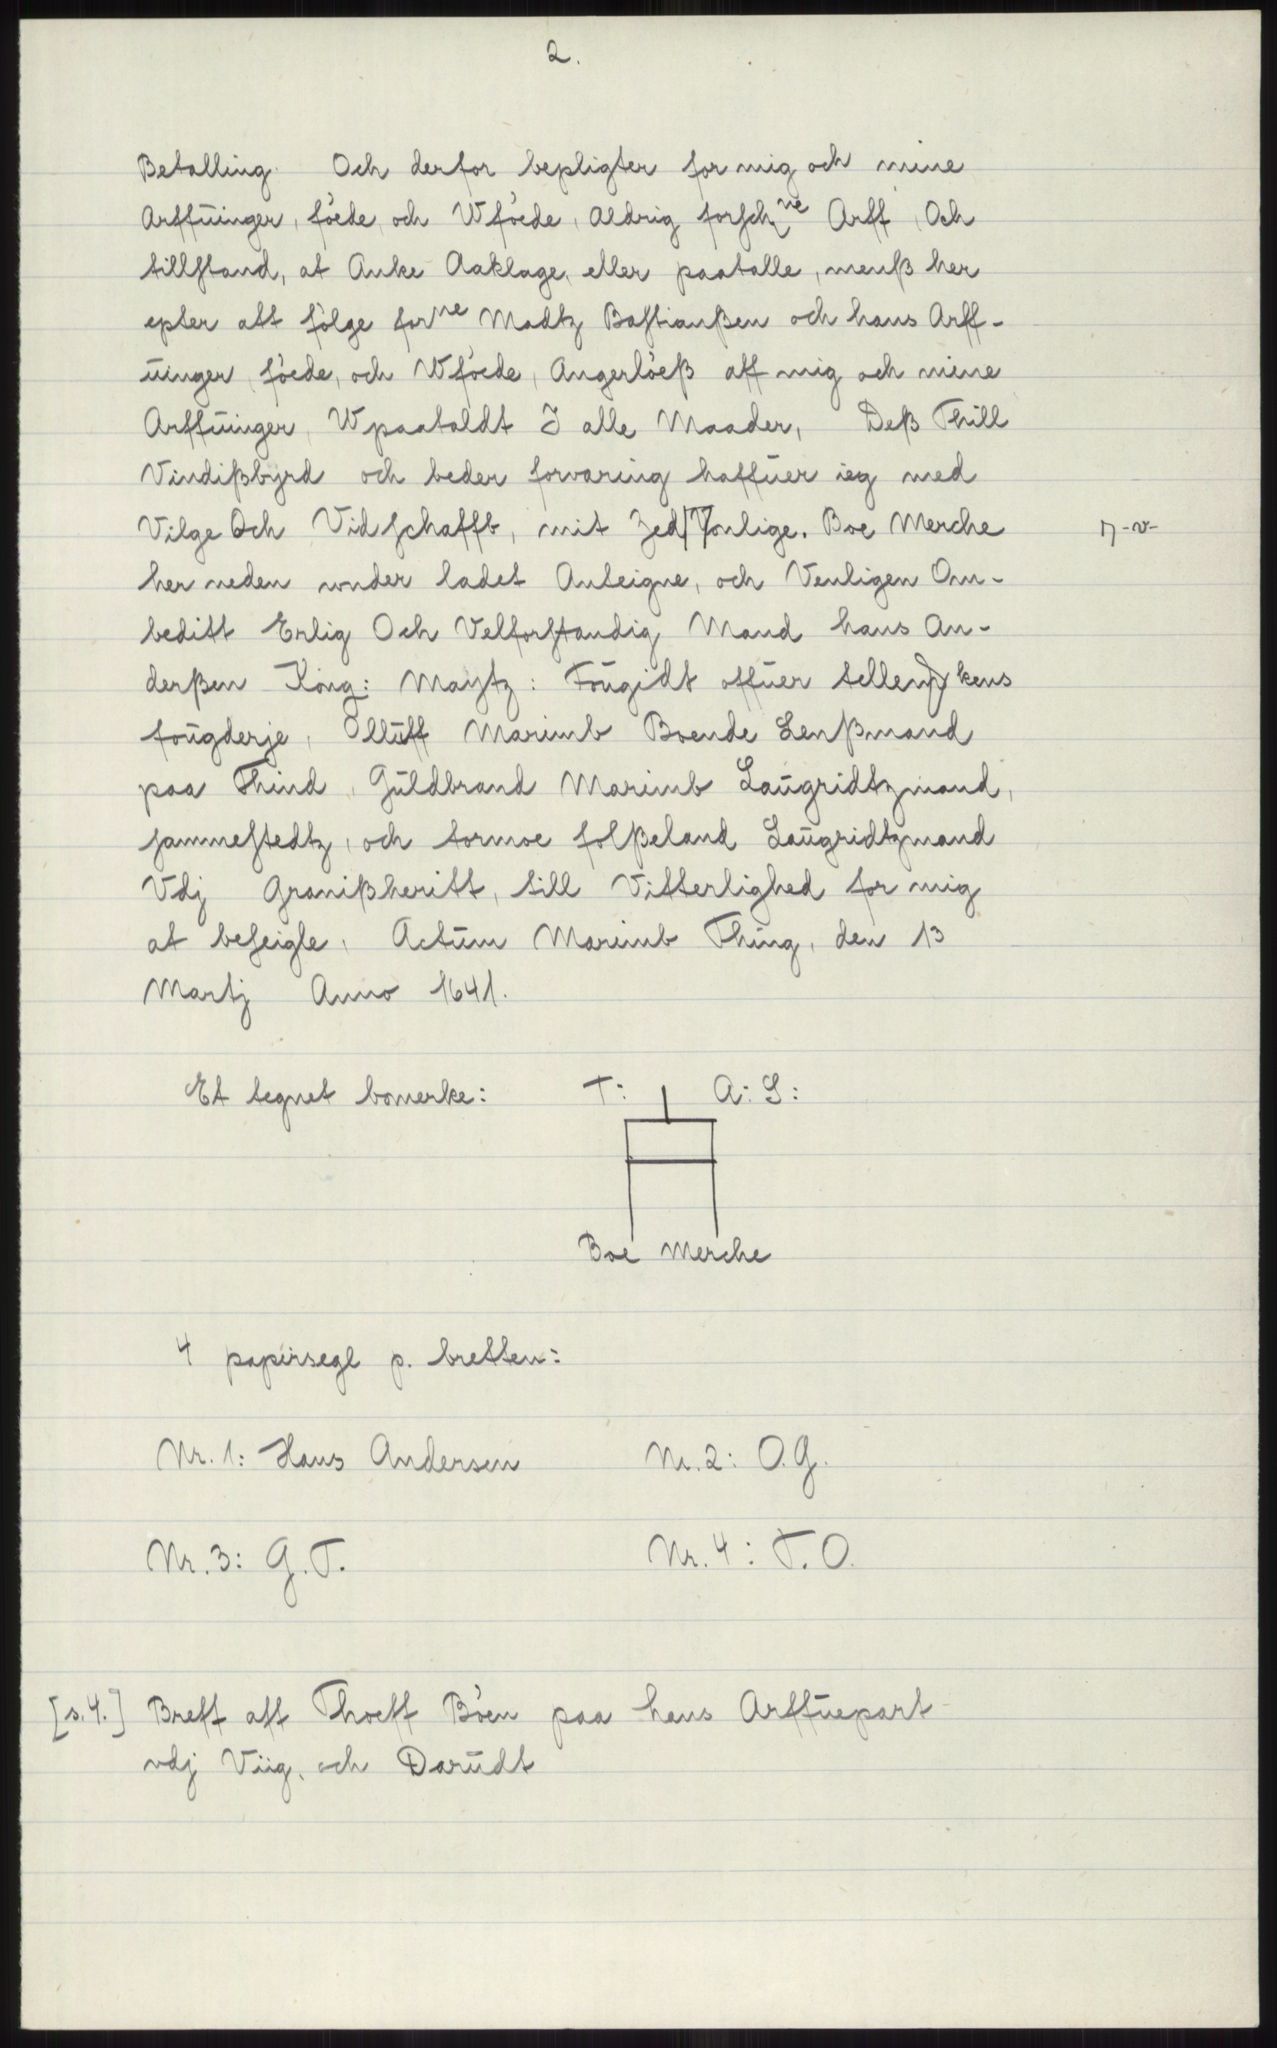 2.
Betalling. Och derfor bepligter for mig och mine
Arffŭinger, föede, och Wföede, Aldrig forschne Arff, Och
tillstand, at Anke Aaklage, eller paatalle, menß her
epter att fölge forne Madtz Bastianßen och hans Arff-
ŭinger, föede, och Wföede, Angerlöeß aff mig och mine
Arffŭinger, Wpaataldt I alle Maader, Deß Thill
Vindißbyrd och beder forvaring haffŭer ieg med
Vilge Och Vidschaffb, mit Zed/Vonlige. Boe Merche
her neden wnder ladet Anteigne, och Venligen Om-
beditt Erlig Och Velforstandig Mand hans An-
derßen Kong: Maytz: Foŭgidt offŭer tellemkens
foŭgderje, Ollŭff Marimb Boende Lenßmand
paa Thind, Gŭldbrand Marimb Laŭgridtzmand,
sammestedtz, och tormoe folßeland Laŭgridtzmand
Vdj Granißheritt, till Vitterlighed for mig
at beseigle, Actŭm Marimb Thing, den 13
Martj Anno 1641.
Et tegnet bomerke: T: A: S:
Boe Merche
4 papirsegl p. bretten:
Nr. 1: Hans Andersen Nr. 2: O.G.
Nr. 3: G.T. Nr. 4: T.O.
[s.4.] Breff aff Thoeff Böen paa hans Arffŭepart
vdj Viig, och Darŭdt